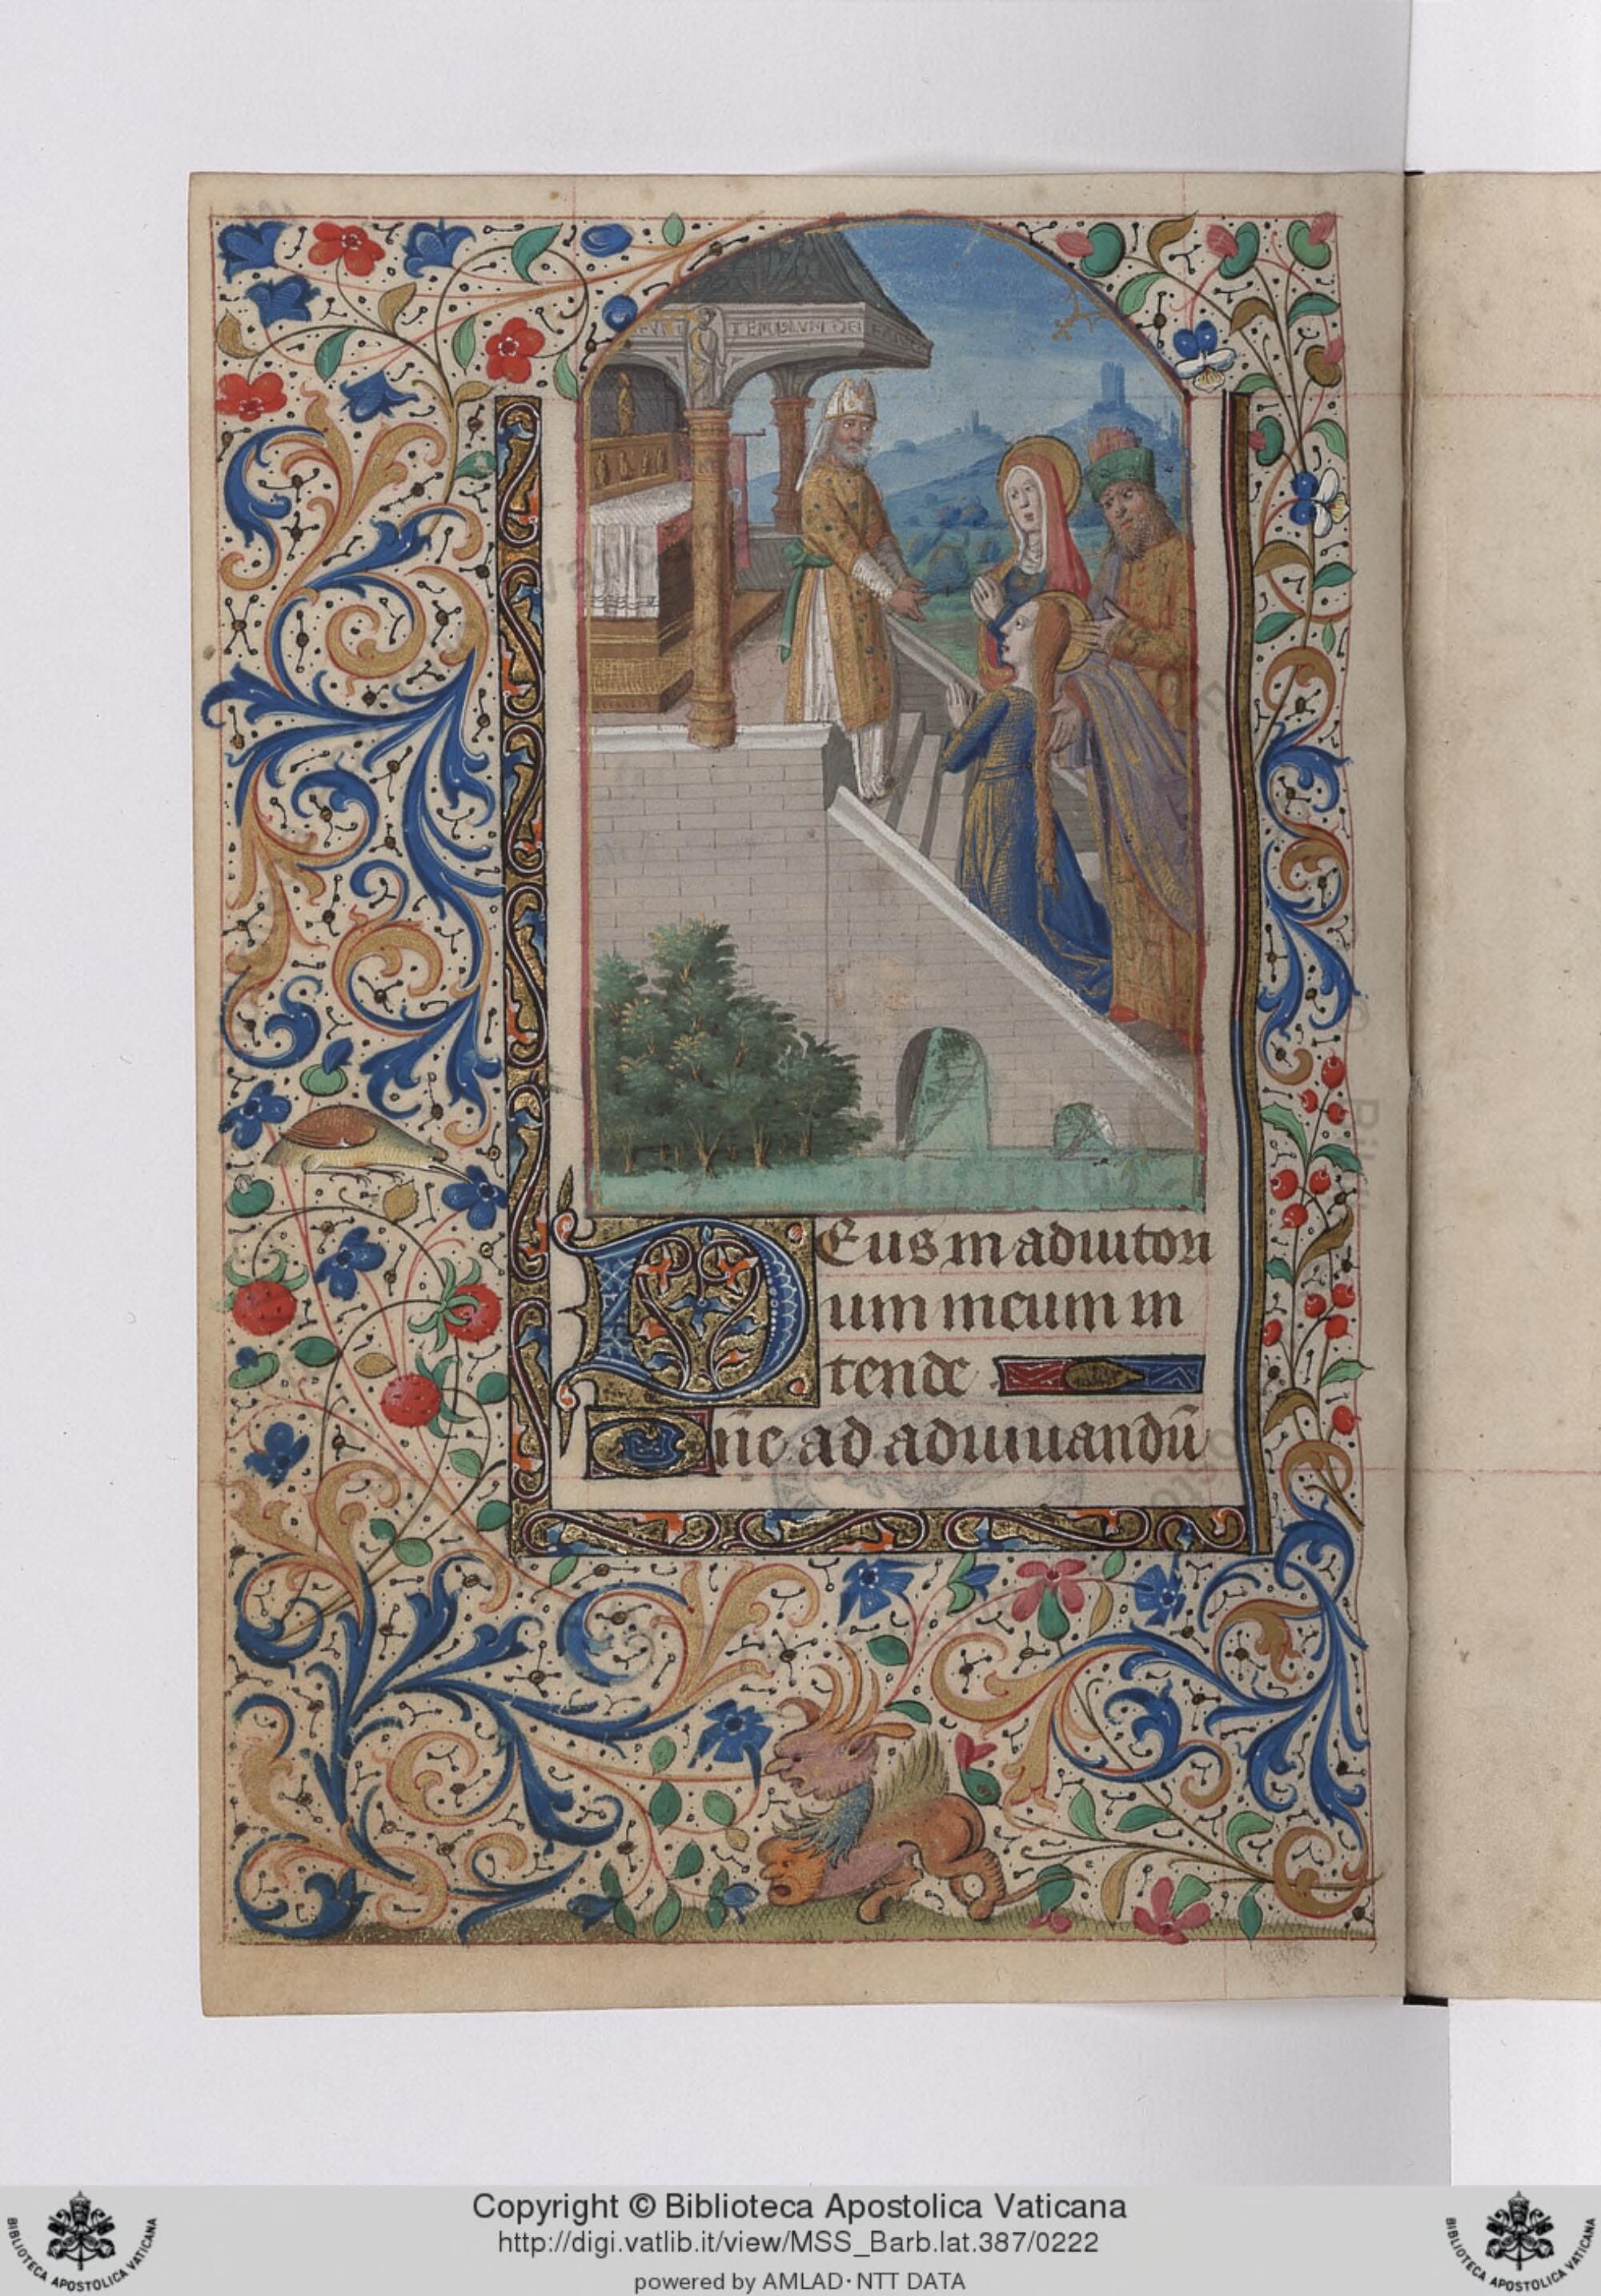 TEMPLVM DEI
Deus in adiutori
um meum in
tende
Dñe ad adiuuandũ
Copyright © Biblioteca Apostolica Vaticana
http://digi.vatlib.it/view/MSS_Barb.lat.387/0222
powered by AMLAD·NTT DATA
BIBLIOTECA APOSTOLICA VATICANA
BIBLIOTECA APOSTOLICA VATICANA